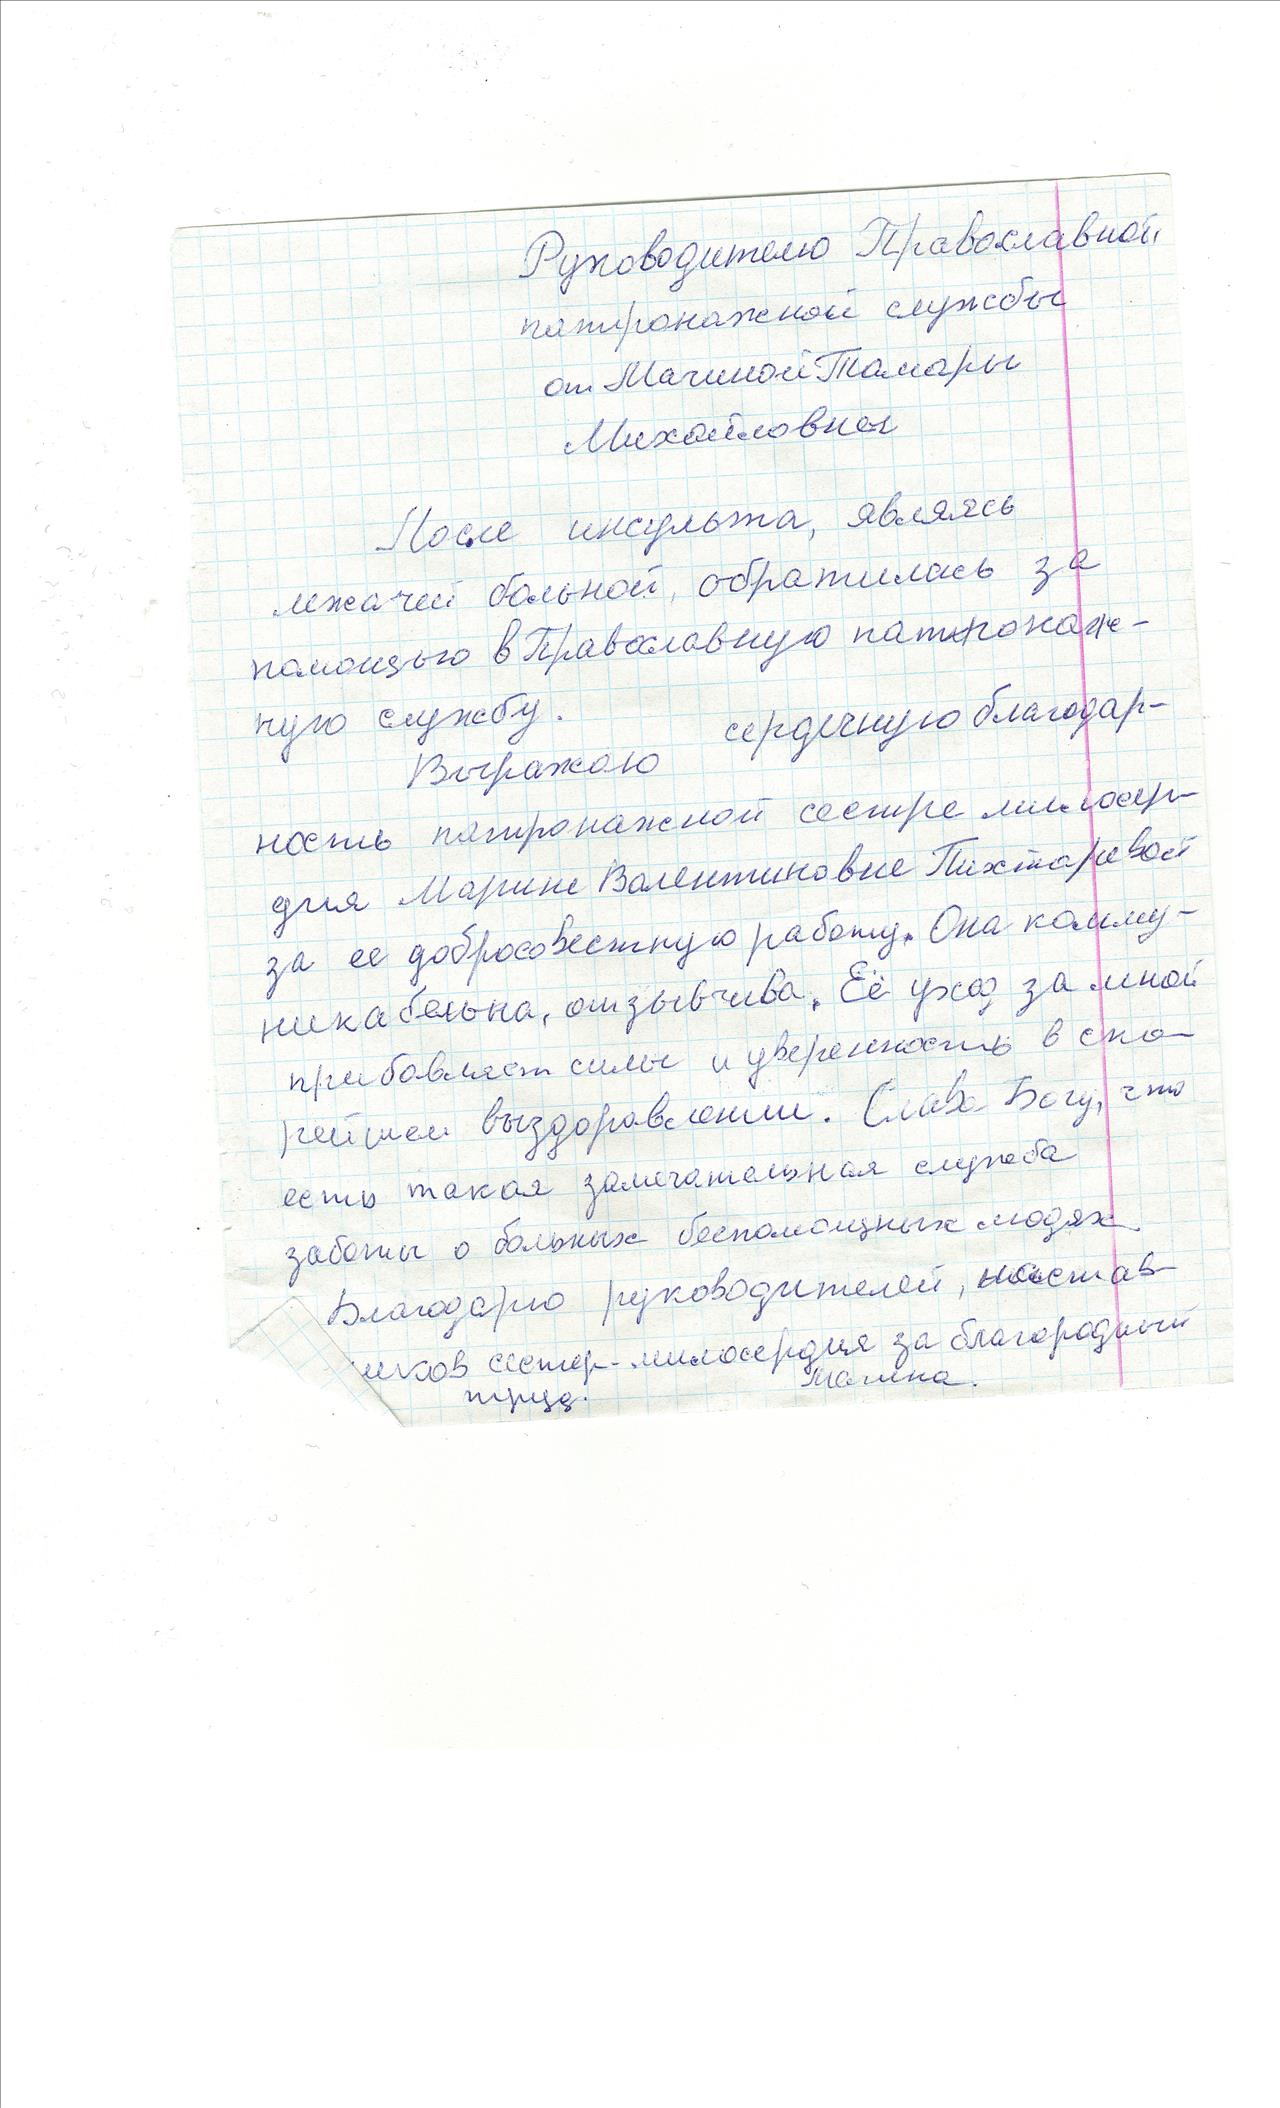 Руководителю Православной
патронажной службы
от Мачиной Тамары
Михайловны
После инсульта, являясь
лежачей больной, обратилась за
помощью в Православную патронаж-
ную службу.
Выражаю сердечную благодар-
ность патронажной сестре милосер-
дия Марине Валентиновне Пихтаревой
за ее добросовестную работу. Она комму-
никабельна, отзывчива. Её уход за мной
прибавляет силы и уверенность в ско-
рейшем выздоравлении. Слава Богу, что
есть такая замечательная служба
заботы о больных беспомощных людях.
Благодарю руководителей, настав-
ников сестер-милосердия за благородный
труд.